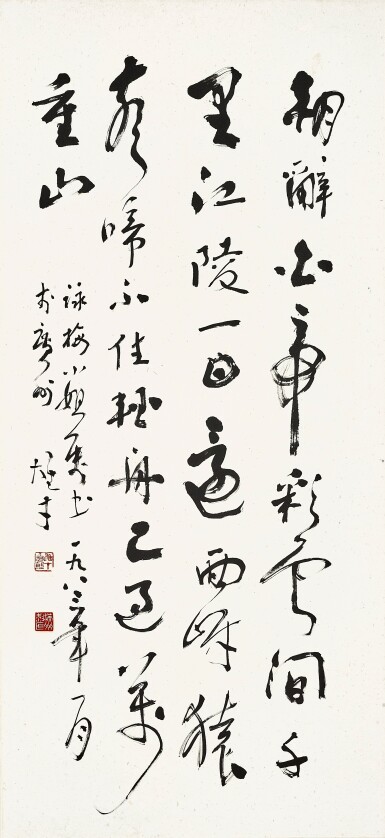 朝辭白帝彩雲間千
里江陵一日還兩岸猿
聲啼不住輕舟已過萬
重山
詠梅小姐屬書一九八三年一月
於廣州雄才